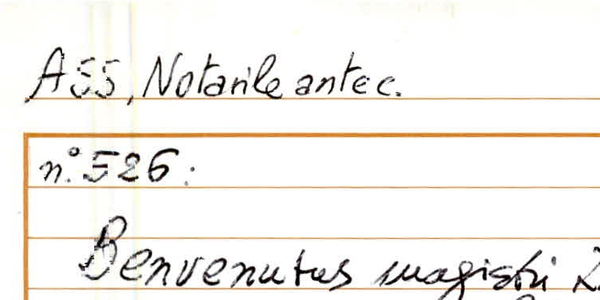 ASS, Notarile antec.
n.° 526:
Benvenutus magistri